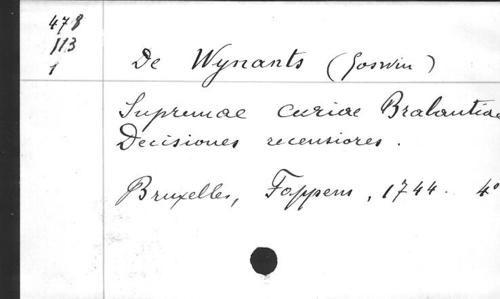 478
113
1
De Wynants (Goswin)
Supremae curiae Brabantiae
Decisiones recensiores.
Bruxelles, Foppens, 1744. 4°